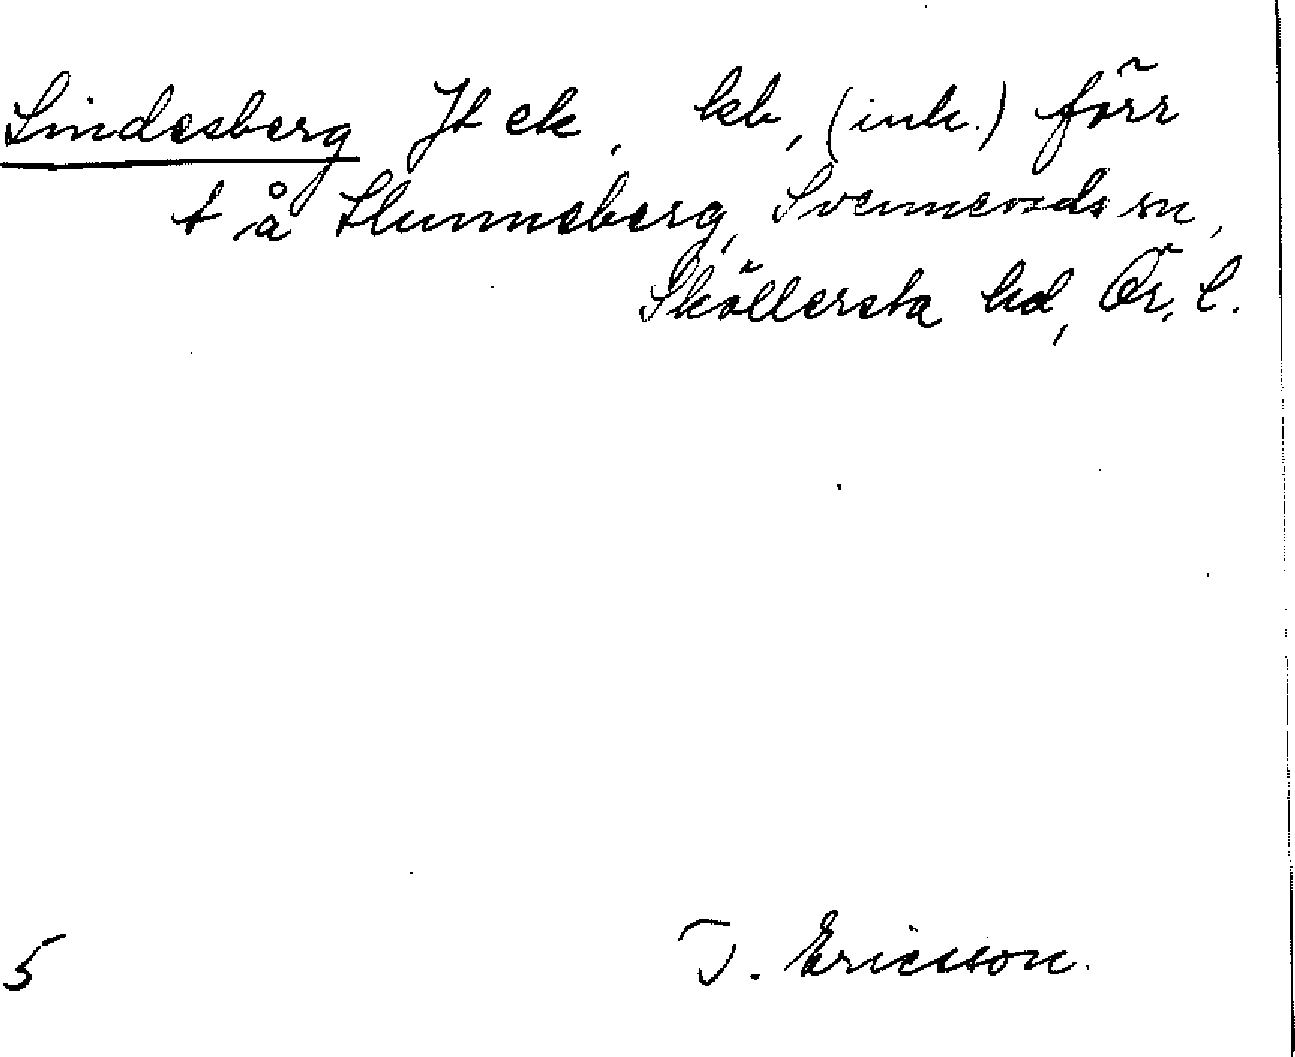 Lindesberg Jt ek, kb, (ink.) förr
t å Slunneberg, Svennevads sn,
Sköllersta hd, Ör. l.
5 T. Ericsson.